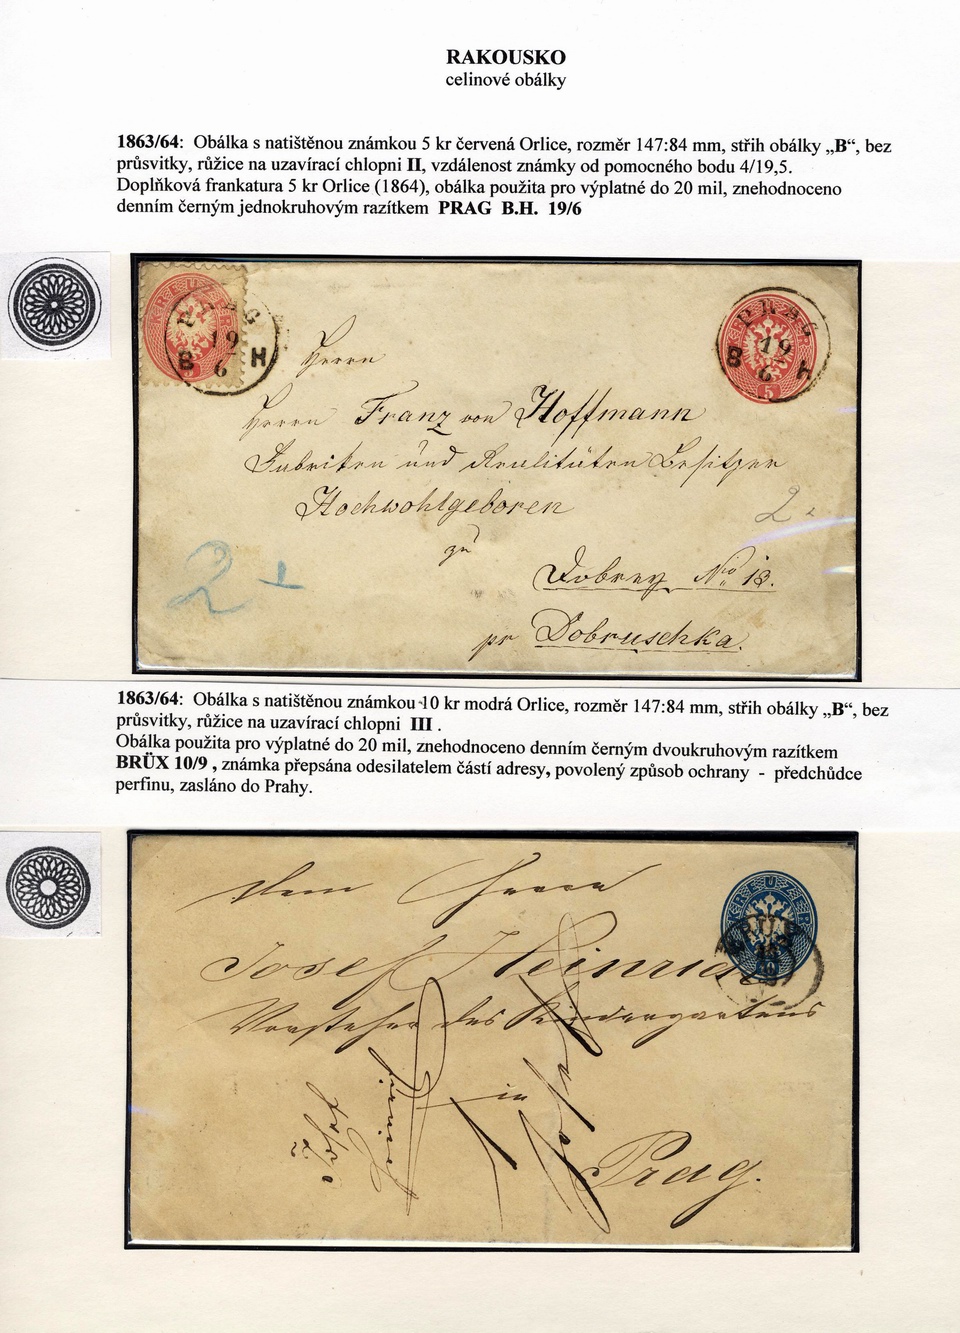 RAKOUSKO
celinové obálky
1863/64: Obálka s natištěnou známkou 5 kr červená Orlice, rozměr 147:84 mm, střih obálky „B“, bez
průsvitky, růžice na uzavírací chlopni II, vzdálenost známky od pomocného bodu 4/19,5.
Doplňková frankatura 5 kr Orlice (1864), obálka použita pro výplatné do 20 mil, znehodnoceno
denním černým jednokruhovým razítkem PRAG B.H. 19/6
PRAG
19
B 6 H
PRAG
19
B 6 H
Herrn
Herrn Franz von Hoffmann
Fabriken und Realitäten Besitzer
Hochwohlgeboren
zu
2
Dobrey No 13.
pr Dobruschka.
2
1863/64: Obálka s natištěnou známkou 10 kr modrá Orlice, rozměr 147:84 mm, střih obálky „B“, bez
průsvitky, růžice na uzavírací chlopni III .
Obálka použita pro výplatné do 20 mil, znehodnoceno denním černým dvoukruhovým razítkem
BRÜX 10/9 , známka přepsána odesilatelem částí adresy, povolený způsob ochrany - předchůdce
perfinu, zasláno do Prahy.
dem Herrn
Josef Heinrich
Vorsteher des Kindergartens
in
Prag.